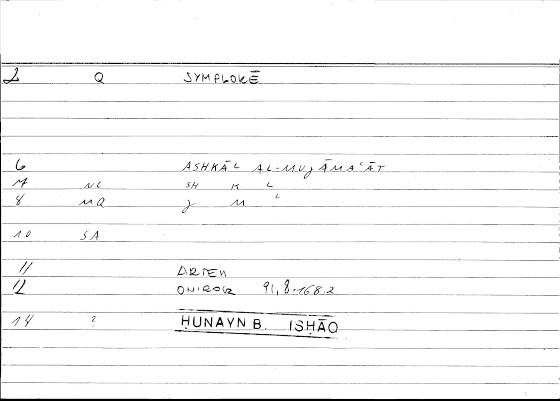 2 Q SYMPLOKĒ
6 ASHKĀL AL-MUJĀMAʿĀT
7 NC SH K L
8 MQ J M ʿ
10 SA
11 ARTEM
12 ONIROCR 91,8-168.2
14 ? ḤUNAYN B. ISḤĀQ